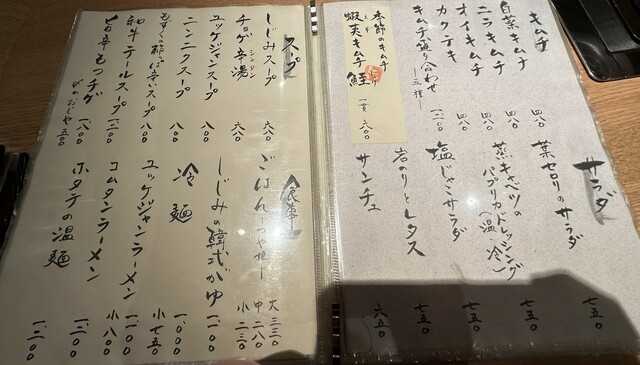 キムチ
白菜キムチ 四八〇
ニラキムチ 四八〇
オイキムチ 四八〇
カクテキ 四八〇
キムチ盛り合わせ 一五種一
季節のキムチ
蝦夷キムチ 鮭
一貫 六〇〇
サラダ
葉セロリのサラダ 七五〇
蒸キャベツのパプリカドレッシング(温・冷) 七五〇
塩じゃこサラダ 七五〇
岩のりとレタス 七五〇
サンチュ 六五〇
スープ
しじみスープ 六八〇
チョゲ辛湯 六八〇
ユッケジャンスープ 八〇〇
ニンニクスープ 八〇〇
もずくの酢っぱ辛いスープ 八〇〇
和牛テールスープ
旨辛もつチゲ
〆のおじや 五〇〇
お食事
ごはん 一つや姫一 大三三〇 中二八〇 小二三〇
しじみの韓式がゆ 一、一〇〇
冷麺 一、〇〇〇
ユッケジャンラーメン 一、一〇〇 小七五〇
コムタンラーメン 小八〇〇
ホタテの温麺